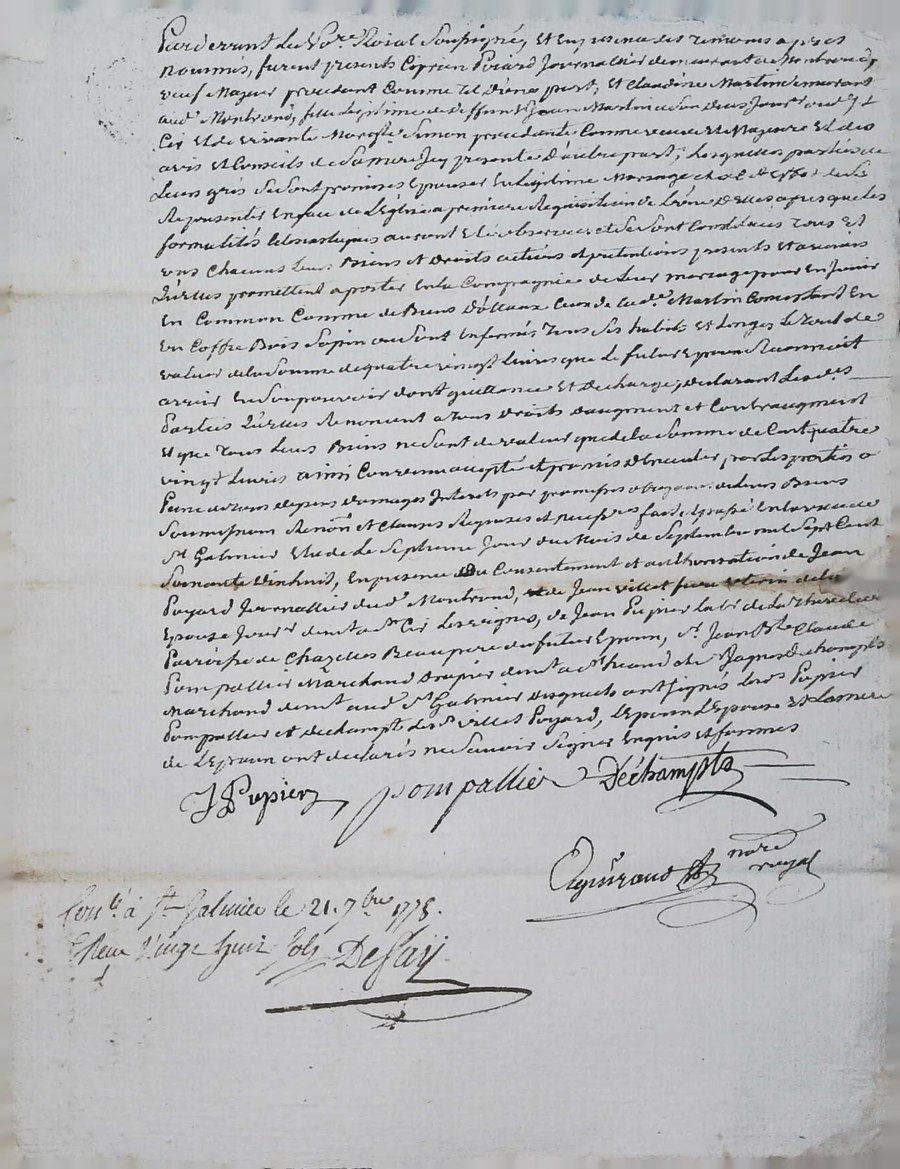 Pardevant le No.re Roial Soussigné, et en presence des temoins apres
nommés, furent presents Ciprien Poiard Journallier demeurant de Montrond,
veuf Majeur procedant Comme tel d'une part, et Claudine Martin demeurant
aud.t Montrond, fille Legitime de deffunt Jean Martin
Cir et de vivante Simon procedante Comme et Majeure et des
avis et Conseils de Sa mere Icy presente d'autre part; Lesquelles parties de
Leurs gres Se Sont promises Epouser en Legitime Mariage et a l'effet de Se
Representer en face de L'église a premiere Requisition de L'une d'elles apres que les
formalités auront eté observées et Se Sont Constitués tous et
uns Chacuns Leurs Biens et Droits actions et pretentions presents et avenir
Qu'elles promettent aporter en la Compagnie de Leur mariage pour en Jouir
en Common Comme de Biens Ceux de lad.e Martin Consistant en
un Coffre Bois Sapin ou Sont enfermés tous Ses habits et Linges Le tout de
valeur de la Somme de quatre vingt Livres que Le futur Epoux Reconnoit
avoir en Son pouvoir dont quittance et decharge, declarant Lesd.es
Parties Qu'elles Renoncent a tous Droits d'augment et Contraugment
et que tous Leurs Biens ne Sont de valeur que de la Somme de Cent quatre
vingt Livres ainsi Convenu accepté et promis d'executer, par Les parties a
Peine de tous depens domages Interets par promesses obligaon. de leurs Biens
Soumissions Renon.n et Clauses Requises et fait et passé en la ville de
S.t Galmier Etude Le Septieme Jour du Mois de Septembre mil Sept Cent
Soixante dixhuit, en presence du Consentement et authorisation de Jean
Poyard Journallier dud.t Montrond, de Jean Villet frere uterin de la
Epouse Jour.r dem.t a S.t Cir Les Vignes, de Jean Pupier Lab.r de
Parroisse de Chazelles Beaupere du futur Epoux, S.r Jean B.te Claude
Pompallier Marchand Drapier dem.t a S.t et Jaques Dechampts
Marchand dem.t aud.t S.t Galmier Lesquels ont Signés Lesd.s Pupier
Pompallier et dechampt Les S.s Villet Poyard, L'epoux L'epouse et La mere
de L'epoux ont declarés ne Savoir Signer Enquis et Sommés
J Pupier pompallier Dechampts
not.re
royal
Con.lé à S.t Galmier le 21. 7bre 1778.
Reçu Vingt huit Sols DeSaÿ